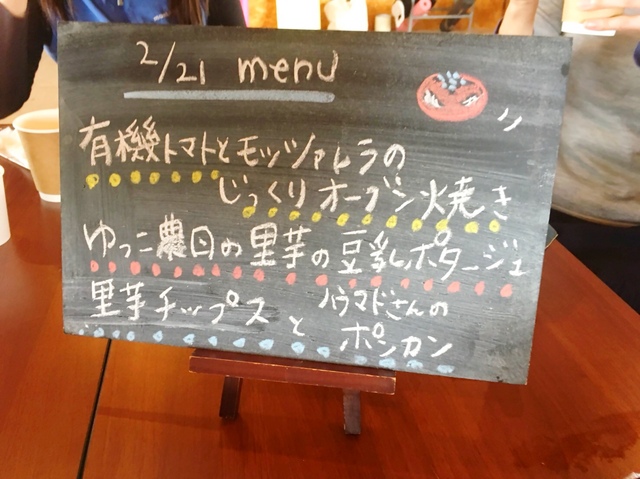 2/21 menu
有機トマトとモッツァレラの
じっくりオーブン焼き
ゆっこ農園の里芋の豆乳ポタージュ
里芋チップスと
ハウマドさんの
ポンカン